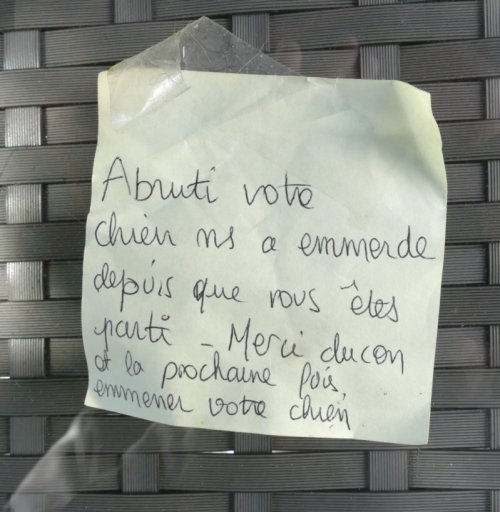 Abruti votre
chien ns a emmerde
depuis que vous êtes
parti - Merci ducon
et la prochaine fois,
emmener votre chien